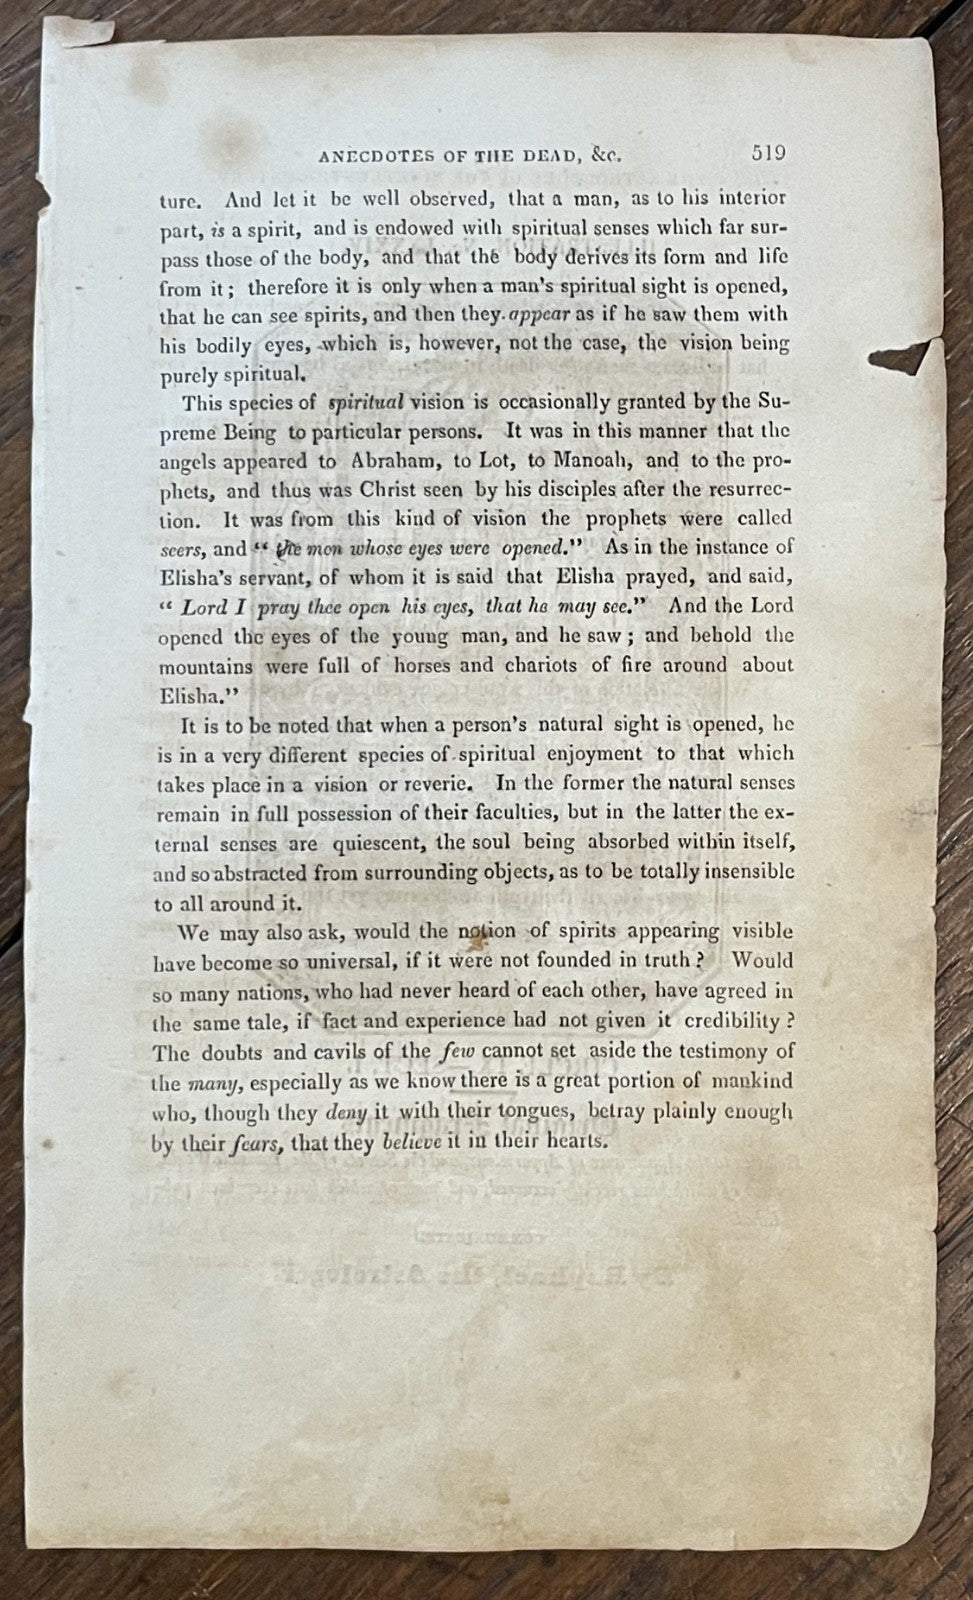 ANECDOTES OF THE DEAD, &c. 519
ture. And let it be well observed, that a man, as to his interior
part, is a spirit, and is endowed with spiritual senses which far sur-
pass those of the body, and that the body derives its form and life
from it; therefore it is only when a man's spiritual sight is opened,
that he can see spirits, and then they appear as if he saw them with
his bodily eyes, which is, however, not the case, the vision being
purely spiritual.
This species of spiritual vision is occasionally granted by the Su-
preme Being to particular persons. It was in this manner that the
angels appeared to Abraham, to Lot, to Manoah, and to the pro-
phets, and thus was Christ seen by his disciples after the resurrec-
tion. It was from this kind of vision the prophets were called
seers, and “ the men whose eyes were opened.” As in the instance of
Elisha's servant, of whom it is said that Elisha prayed, and said,
“ Lord I pray thee open his eyes, that he may see.” And the Lord
opened the eyes of the young man, and he saw; and behold the
mountains were full of horses and chariots of fire around about
Elisha.”
It is to be noted that when a person's natural sight is opened, he
is in a very different species of spiritual enjoyment to that which
takes place in a vision or reverie. In the former the natural senses
remain in full possession of their faculties, but in the latter the ex-
ternal senses are quiescent, the soul being absorbed within itself,
and so abstracted from surrounding objects, as to be totally insensible
to all around it.
We may also ask, would the notion of spirits appearing visible
have become so universal, if it were not founded in truth? Would
so many nations, who had never heard of each other, have agreed in
the same tale, if fact and experience had not given it credibility?
The doubts and cavils of the few cannot set aside the testimony of
the many, especially as we know there is a great portion of mankind
who, though they deny it with their tongues, betray plainly enough
by their fears, that they believe it in their hearts.